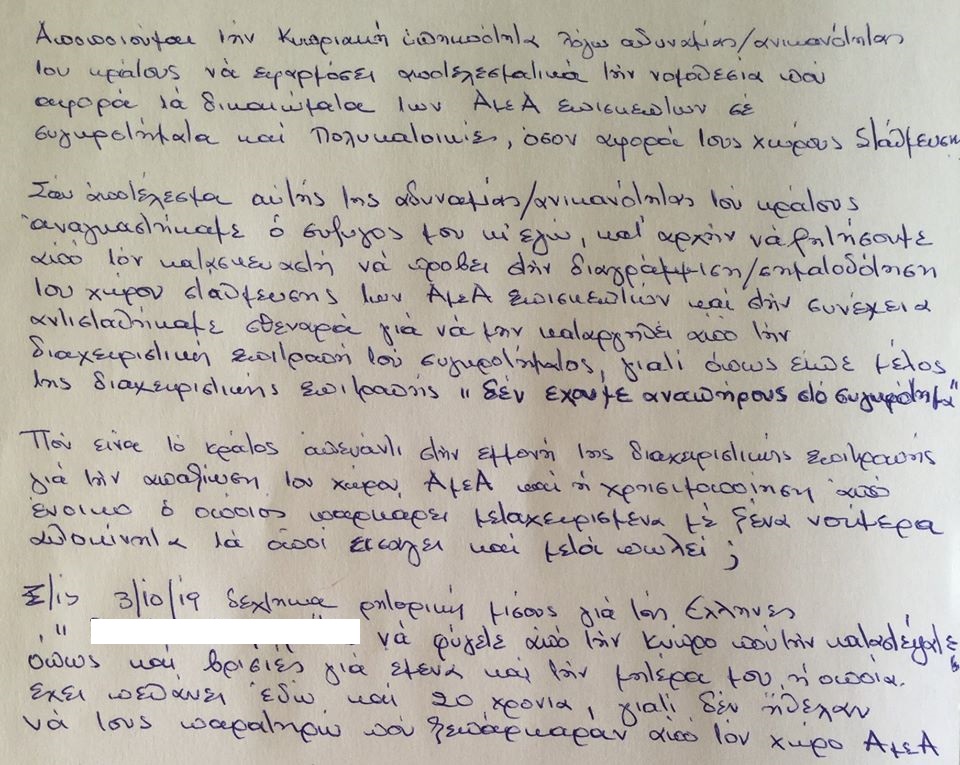 Αποποιούμαι την Κυπριακή υπηκοότητα λόγω αδυναμίας/ανικανότητας
του κράτους νά εφαρμόσει αποτελεσματικά τήν νομοθεσία πού
αφορά τά δικαιώματα των ΑμεΑ επισκεπτών σέ
συγκροτήματα και πολυκατοικίες, όσον αφορά τους χώρους στάθμευση
Σάν αποτέλεσμα αυτής της αδυναμίας/ανικανότητας τού κράτους
αναγκαστήκαμε ό συζυγος μου κι' εγώ, κατ' αρχήν νά ζητήσουμε
από τόν κατασκευαστή νά προβει στήν διαγράμμιση/σηματοδότηση
του χώρου στάθμευσης των ΑμεΑ επισκεπτών και στήν συνέχεια
αντισταθήκαμε σθεναρά γιά νά μην καταργηθεί από την
διαχειριστική επιτροπή τού συγκροτήματος, γιατί όπως είπε μέλος
της διαχειριστικής επιτροπής " δέν εχουμε αναπήρους στό συγκρότημα"
Πού ειναι τό κράτος απέναντι στήν εμμονή της διαχειριστικής επιτροπής
γιά τήν απαξίωση του χώρου ΑμεΑ και ή χρησιμοποίηση από
ένοικο ό οποίος παρκαρει μεταχειρισμένα μέ ξένα νούμερα
αυτοκίνητα τά οποί εισαγει και μετά πωλεί ;
Στίς 3/10/19 δεχτηκα ρητορική μίσους γιά τούς Ελληνες
" νά φύγετε από τήν Κυπρο πού τήν καταστέψατε "
όπως και βρισιές γιά εμένα και τήν μητέρα μου, ή οποία
έχει πεθάνει εδώ και 20 χρονια, γιατί δέν ήθελαν
νά τους παρατηρώ πού ξεπάρκαραν από τόν χώρο ΑμεΑ